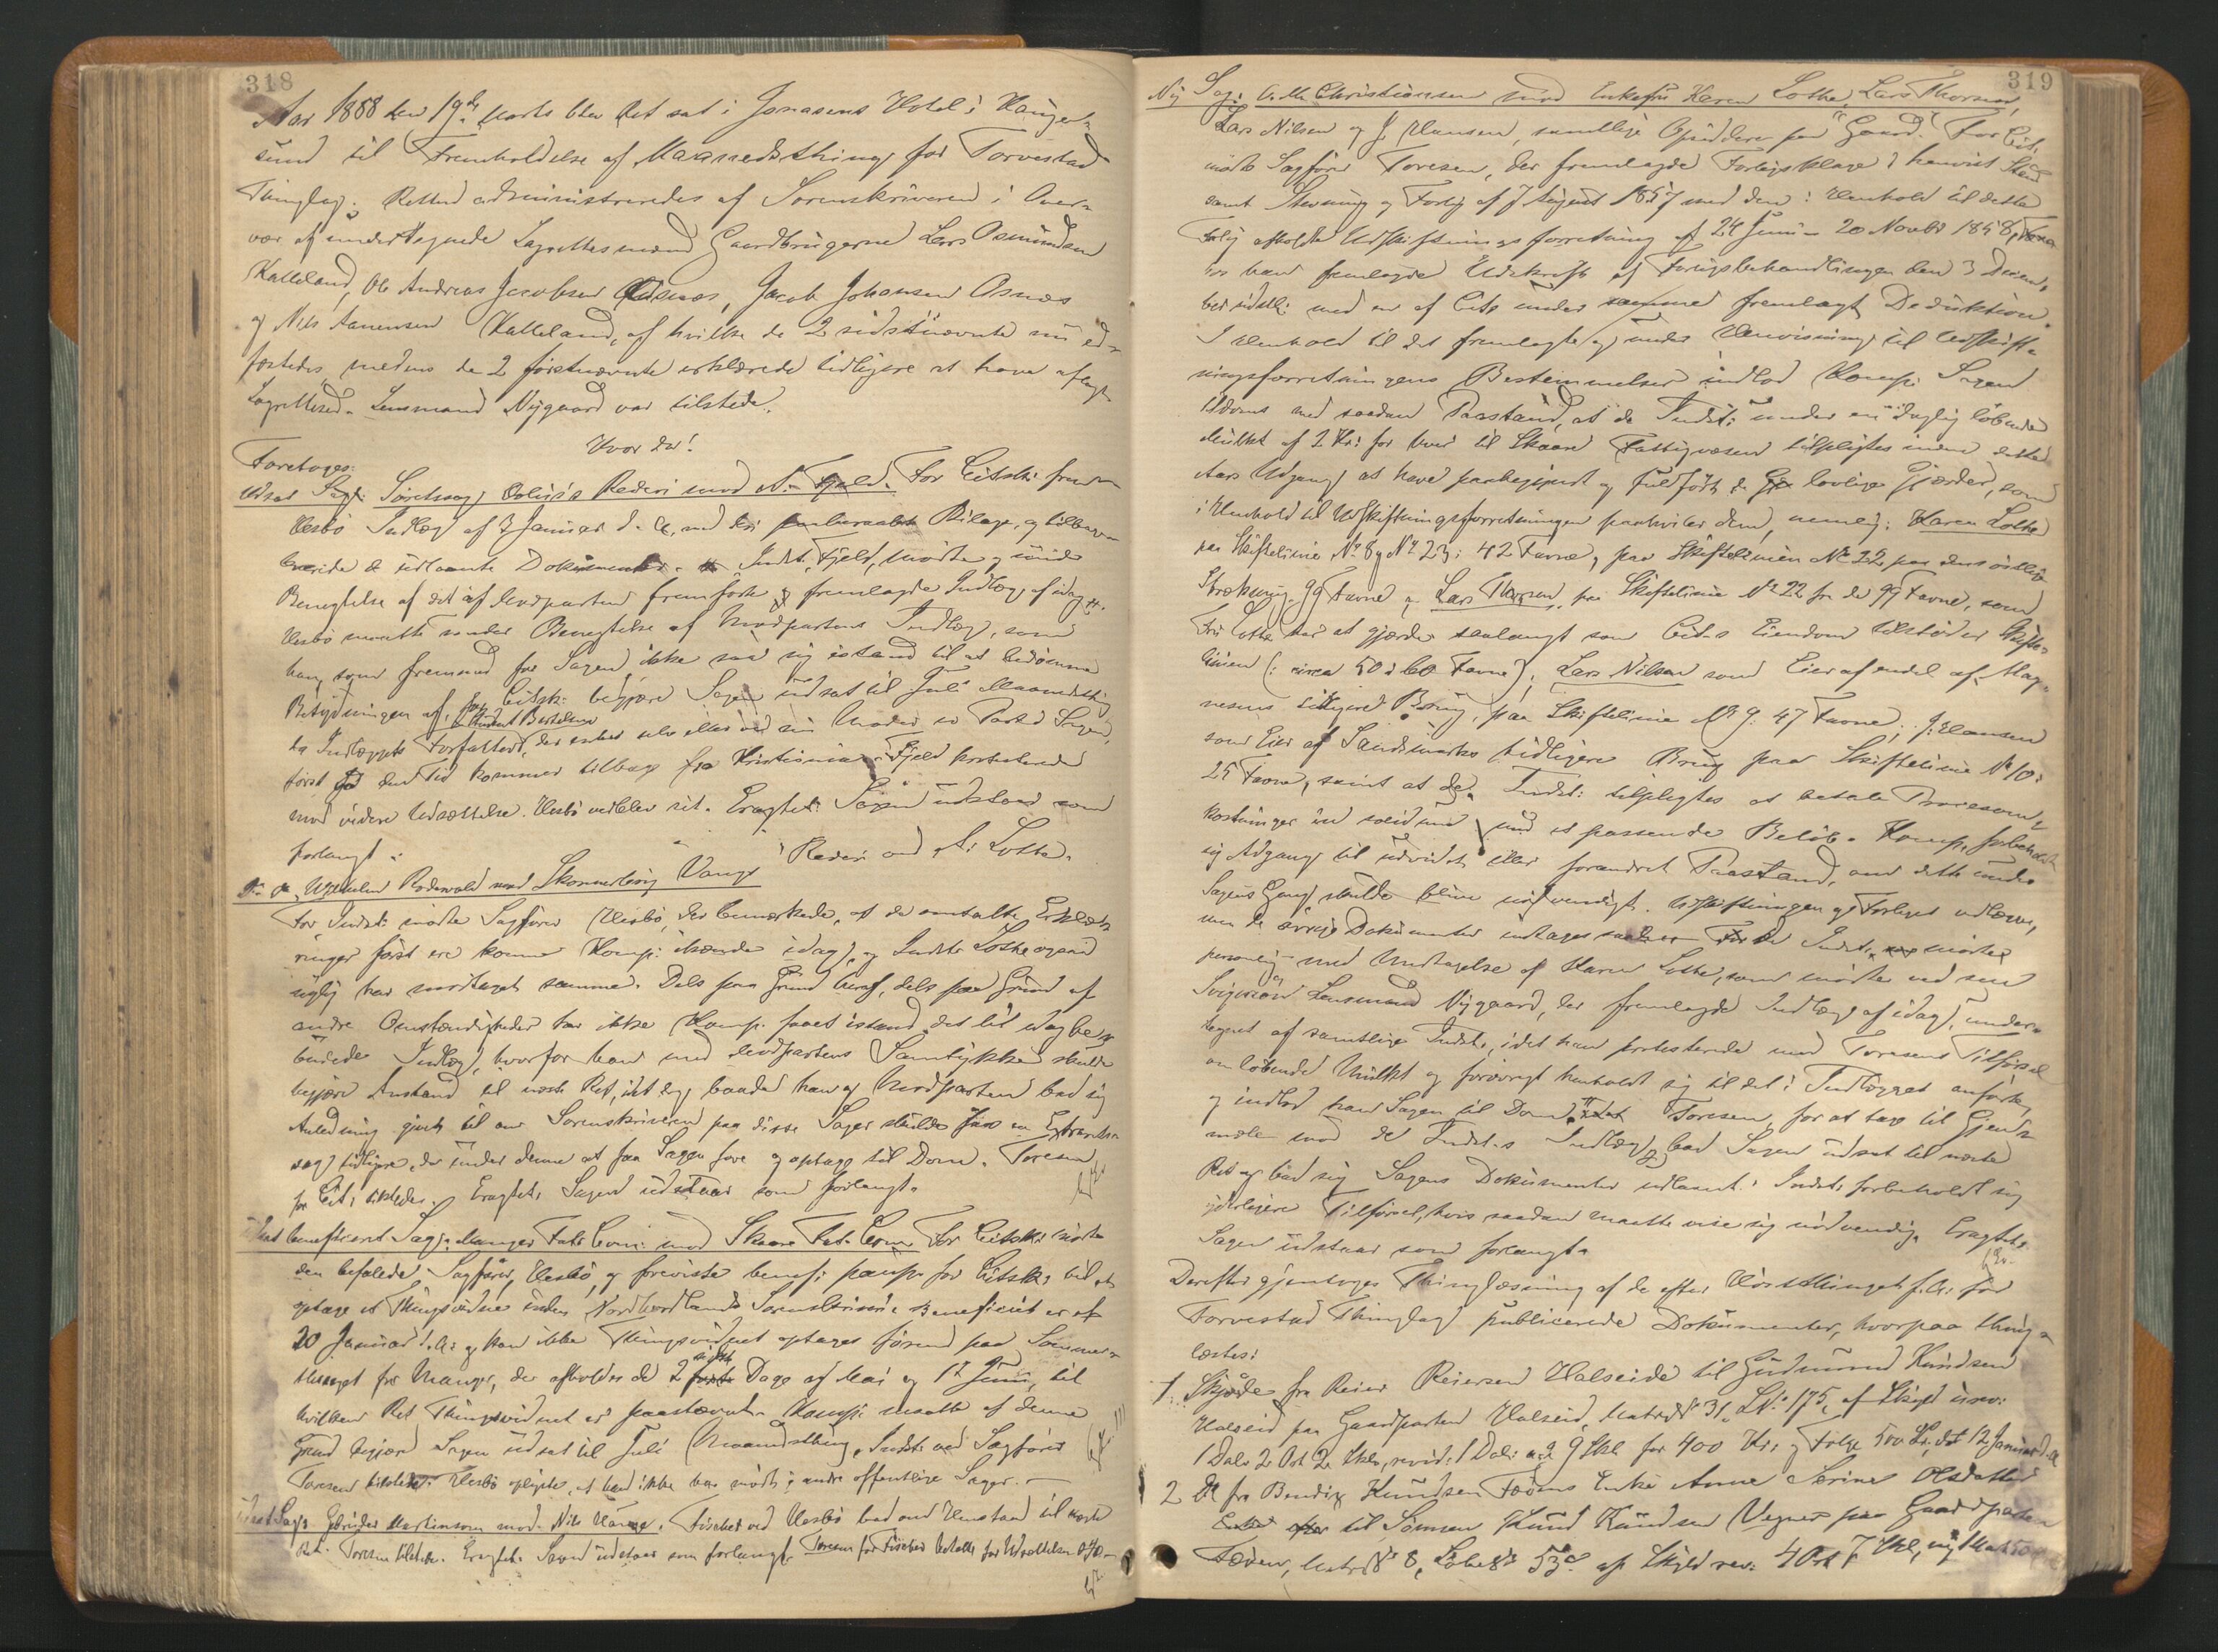 318
Aar 1888 den 19de Marts blev Ret sat i Jonasens Hotel i Hauge-
sund til Fremholdelse af Maanedsthing for Torvestad
Thinglag. Retten administreredes af Sorenskriveren i Over-
vær af undertegnede Lagrettesmænd Gaardbrugerne Lars Osmundsen
Kalleland, Ole Andreas Jacobsen Osnæs, Jacob Johansen Osnæs
og Nils Aanensen Kalleland, af hvilke de 2 sidstnævnte nu ed-
fæstedes, medens de 2 førstnævnte erklærede tidligere at have aflagt
Lagretteseed. Lensmand Nygaard var tilstede.
Hvor da!
Foretoges:
Udsat Sag: Søretssag Rederi mod N. Fjeld. For Citstk: frem
Hesbø Indlæg af 7 Januar d. A. med Bilage, og tilbage
leverede de udlaante Dokumenter. Indst. Fjeld, mødte og under
Benegtelse af det af Modparten fremførte fremlagde Indlæg af idag.
Hesbø maatte under Benegtelse af Modpartens Indlæg, som
han som fremmed for Sagen ikke saa sig istand til at bedømme
Betydningen af, for Citstk: begjære Sagen udsat til Juli Maanedsthing
da Indlæggets Forfatter, Student Bertelsen der enten selv eller ved sin Moder er Part i Sagen,
først paa den Tid kommer tilbage fra Kristiania. Fjeld protesterede
mod videre Udsættelse. Hesbø vedblev sit. Eragtet: Sagen udstaar som
forlangt.
Wilhelm Rodewald mod Skonnertbrig "Vangs" Rederi ved A. Lothe.
For Indst: mødte Sagfører Hesbø, der bemærkede, at de omtalte Erklæ-
ringer først ere komne Komp: ihænde idag, og Indst: Lothe ogsaa
nylig har modtaget samme. Dels paa Grund heraf, dels paa Grund af
andre Omstændigheder har ikke Komp. faaet istand det til idag be-
budede Indlæg, hvorfor han med Modpartens Samtykke skulde
begjære Anstand til næste Ret, idet dog baade han og Modparten bad sig
Anledning givet til om Sorenskriveren paa disse Sager skulde have en Extrarets-
dag tidligere, da under denne at faa Sagen fore og optage til Dom. Toresen
for Cit: tilstede. Eragtet: Sagen udstaar som forlangt.
Udsat beneficeret Sag: Manger Fat: Com: mod Skaare Fat: Com: For Citstk: mødte
den befalede Sagfører, Hesbø, og foreviste benef: paup: for Citstk: til at
optage et Thingsvidne inden Nordhordlands Sorenskriveri. Beneficiet er af
20 Januar d. A: og kan ikke Thingsvidnet optages førend paa Sommer-
thinget for Manger, der afholdes de 2 sidste Dage af Mai og 1ste Juni, til
hvilken Ret Thingsvidnet er paastævnt. Komp: maatte af denne
Grund begjære Sagen udsat til Juli Maanedsthing. Indst: ved Sagfører
Toresen tilstede. Hesbø oplyste, at han ikke har mødt i andre offentlige Sager.
Udsat Sag: Gebrüder Martinsen mod Nils Hauge. Fischer ved Hesbø bad om Henstand til næste
Ret. Toresen tilstede. Eragtet: Sagen udstaar som forlangt. Toresen for Fischer betalte for Udsættelsen
319
Ny Sag: C. M. Christiansen mod Enkefru Karen Lothe, Lars Thorsen,
Lars Nilsen og J Hansen, samtlige Opsiddere paa "Gaard". For Cit:
mødte Sagfører Toresen, der fremlagde Forligsklage i henvist Stand
samt Stevning og Forlig af 7 August 1857 med den i Henhold til dette
Forlig afholdte Udskiftningsforretning af 24 Juni - 20 Novbr 1858,
han fremlagde Udskrift af Forligsbehandlingen den 3 Decem-
ber sidstl: med en af Cit: under samme fremlagt Deduktion.
I Henhold til det fremlagte og under Henvisning til Udskift-
ningsforretningens Bestemmelser indlod Komp: Sagen
til Doms med saadan Paastand, at de Indst: under en daglig løbende
Mulkt af 2 Kr: for hver til Skaare Fattigvæsen tilpligtes inden dette
Aars Udgang at have paabegyndt og fuldført de lovlige Gjærder, som
i Henhold til Udskiftningsforretningen paahviler dem, nemlig: Karen Lothe
paa Skiftelinie No 8 og No 23: 42 Favne, paa Skiftelinien No 22 paa dens østlige
Strækning 99 Favne, Lars Thorsen, paa Skiftelinie No 22 fra de 99 Favne, som
Fru Lothe har at gjærde saalangt som Cit:s Eiendom tilstøder Skifte-
linien (: circa 50 à 60 Favne); Lars Nilsen som Eier af endel af Mag-
nesens tidligere Brug, paa Skiftelinie No 9: 47 Favne; J. Hansen
som Eier af Sandsmarks tidligere Brug paa Skiftelinie No 10:
25 Favne, samt at de Indst: tilpligtes at betale Procesom-
kostninger med et passende Beløb. Komp. forbeholdt
sig Adgang til udvidet eller forandret Paastand, om dette under
Sagens Gang skulde blive nødvendigt. Udskiftningen og Forliget vedlægges,
men de øvrige Dokumenter indtages De Indst: mødte
personlig med Undtagelse af Karen Lothe, som mødte ved sin
Svigersøn Lensmand Nygaard, der fremlagde Indlæg af idag, under-
tegnet af samtlige Indst:, idet han protesterede mod Toresens Tilførsel
om løbende Mulkt og forøvrigt henholdt sig til det i Indlægget anførte,
og indlod han Sagen til Dom. Toresen, for at tage til Gjen-
mæle mod de Indst:s Indlæg, bad Sagen udsat til næste
Ret og bad sig Sagens Dokumenter udlaant. Indst: forbeholdt sig
yderligere Tilførsel, hvis saadan maatte vise sig nødvendig. Eragtet:
Sagen udstaar som forlangt.
Derefter gjentoges Thinglæsning af de efter Høstthinget f. A. for
Torvestad Thinglag publicerede Dokumenter, hvorpaa thing-
læstes:
1. Skjøde fra Reier Reiersen Halseide til Gudmund Knudsen
Halseid paa Gaardparten Halseid, Matr No 31, LNo 175, af Skyld
1 Daler 2 Ort 2 Skl, revid: 1 Daler 9 Skl for 400 Kr: og Følge 500 Kr, dat 12 Januar d. A
2 Do fra Bendix Knudsen Føyens Enke Anne Serine Olsdatter
til Sønnen Knud Knudsen Vegner paa Gaardparten
Føien, Matr No 8, Løbe No 53c af Skyld rev: 4 Ort 7 Skl, ny Mark